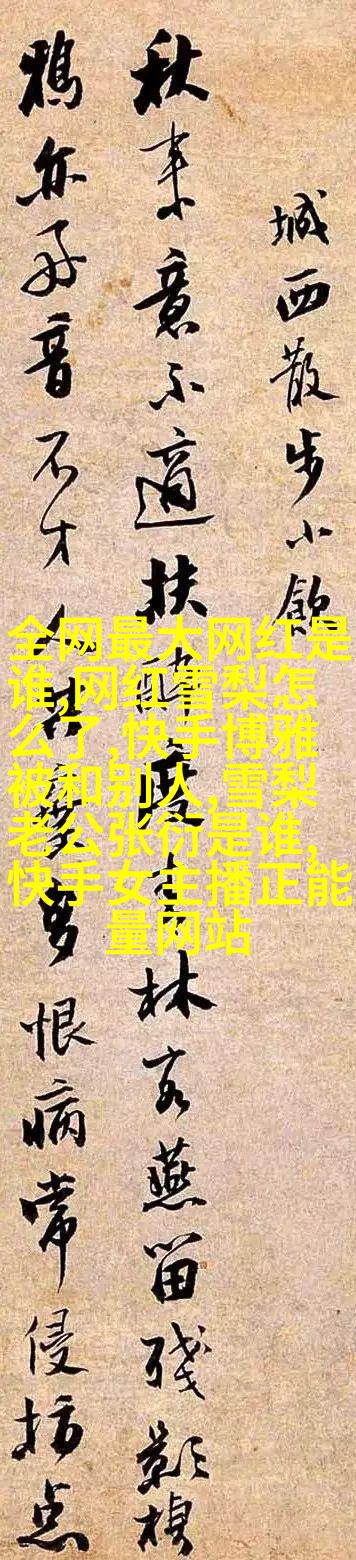 城西散步小飲
秋来意不適扶醉度林客燕留殘影棲
鴉亦好音不才人多恨病常侵拚点
全网最大网红是
谁,网红雪梨怎
么了,快手博雅
被和别人,雪梨
老公张衍是谁,
快手女主播正能
量网站